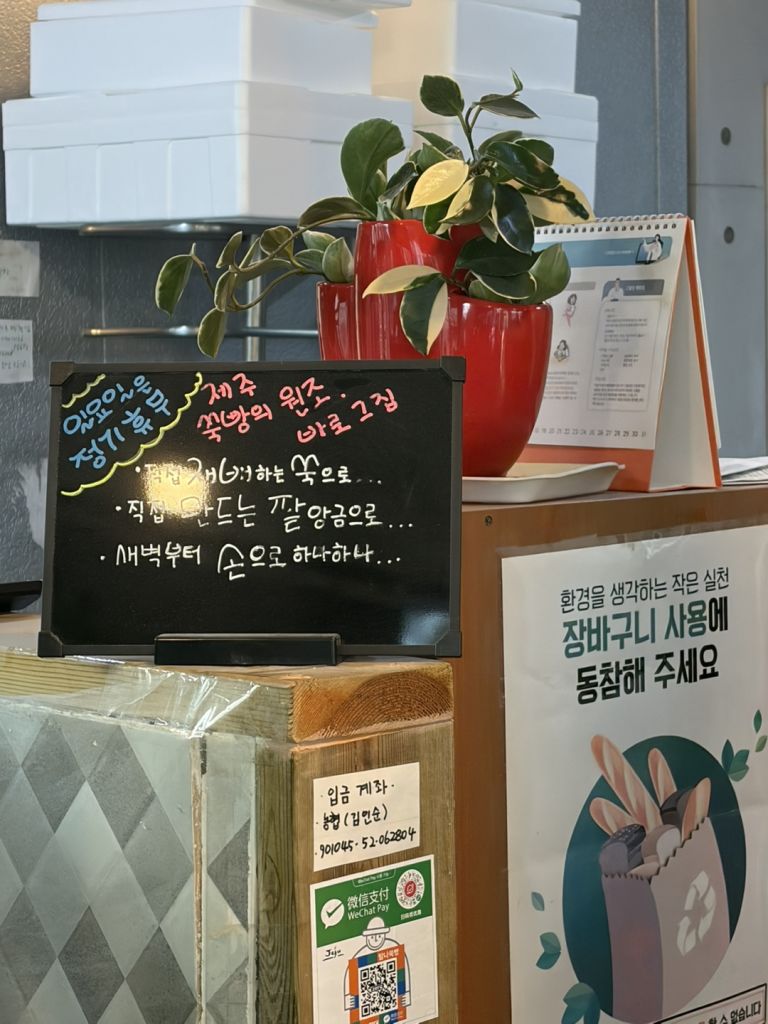 일요일은
정기휴무
제주
쑥빵의 원조.
바로 그집
· 직접 재배하는 쑥으로...
· 직접 만드는 팥앙금으로...
· 새벽부터 손으로 하나하나...
환경을 생각하는 작은 실천
장바구니 사용에
동참해 주세요
· 입금 계좌 ·
· 농협 (김인순)
· 901045-52-062804
微信支付
WeChat Pay
Jeju
할 수 없습니다